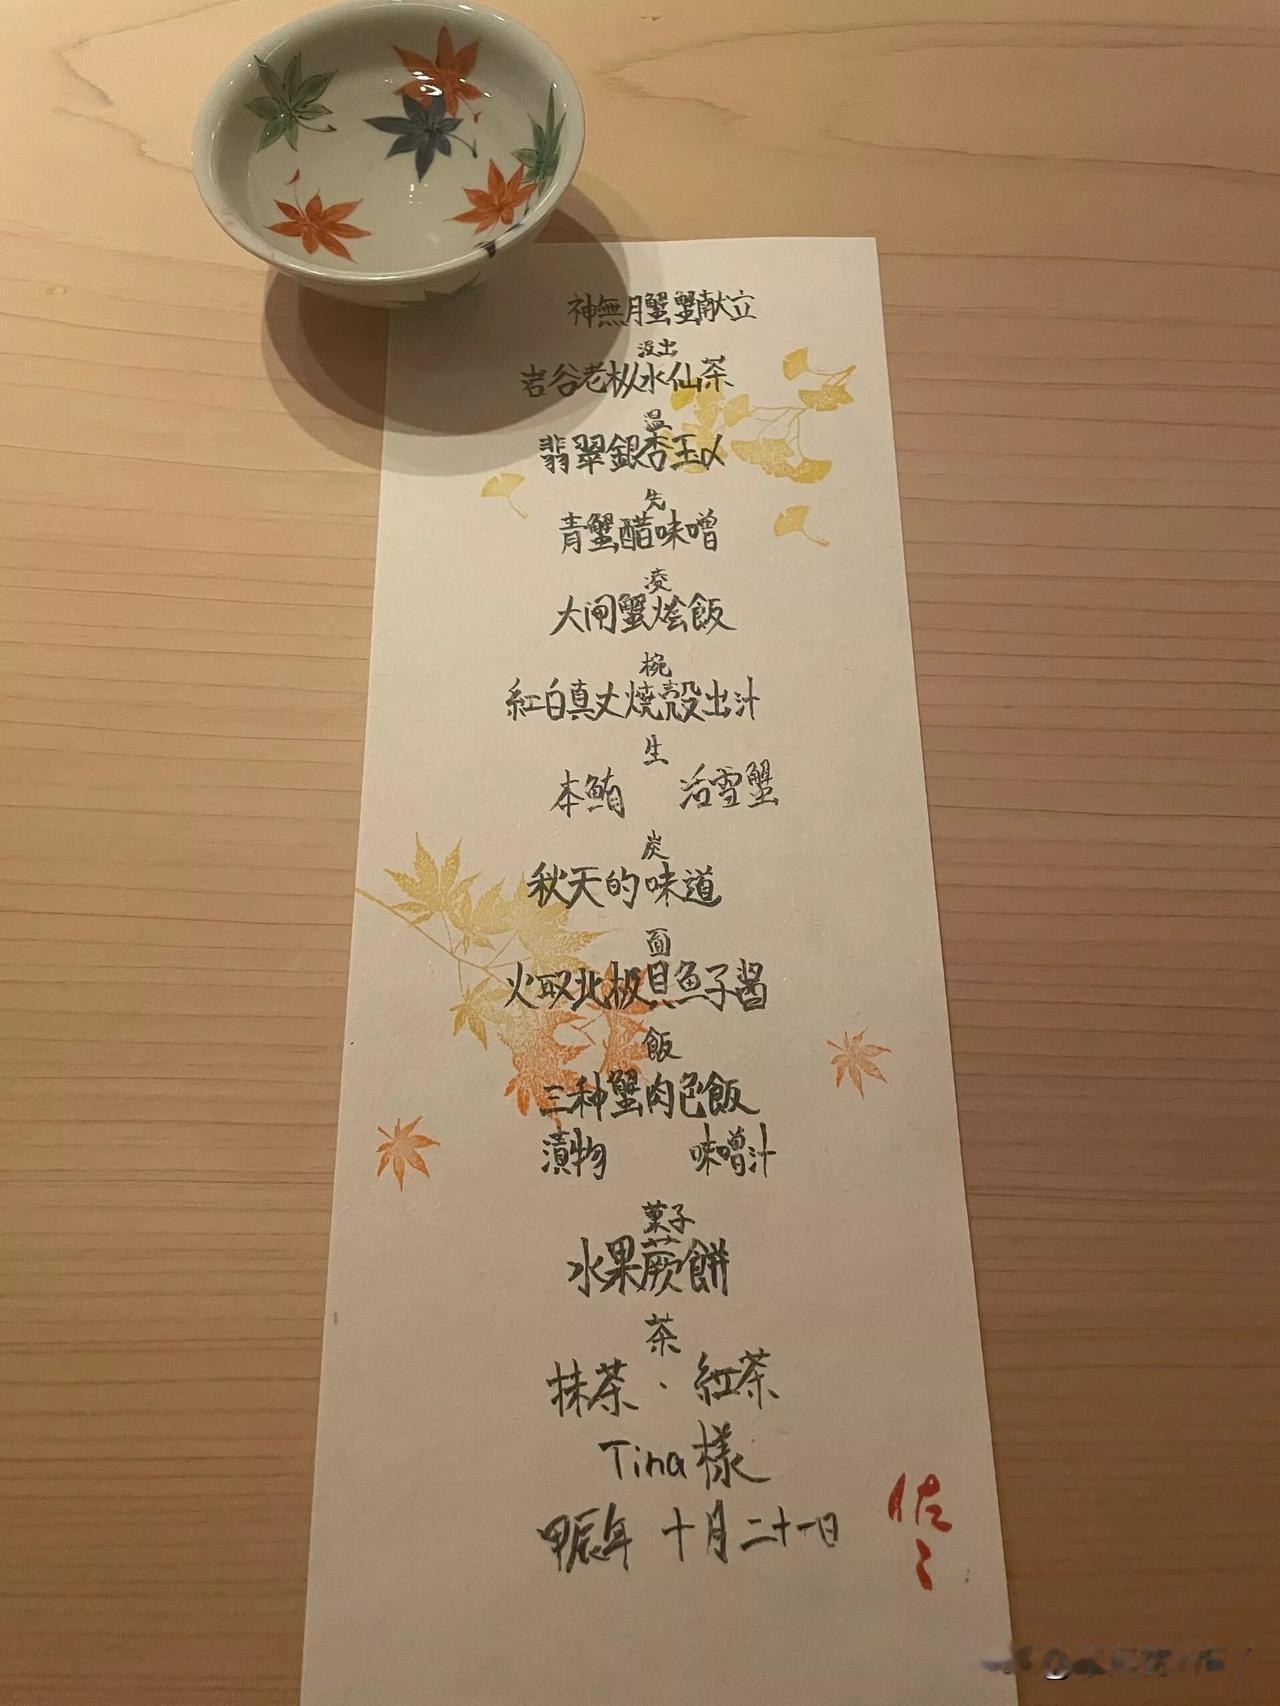 神無月蟹蟹献立
汲出
岩谷老枞水仙茶
温
翡翠銀杏玉〆
先
青蟹醋味噌
凌
大闸蟹烩飯
椀
紅白真丈燒殼出汁
生
本鮪 活雪蟹
炭
秋天的味道
面
火取北极貝魚子醤
飯
三种蟹肉色飯
漬物 味噌汁
菓子
水果蕨餅
茶
抹茶·紅茶
Tina様
甲辰年 十月二十一日